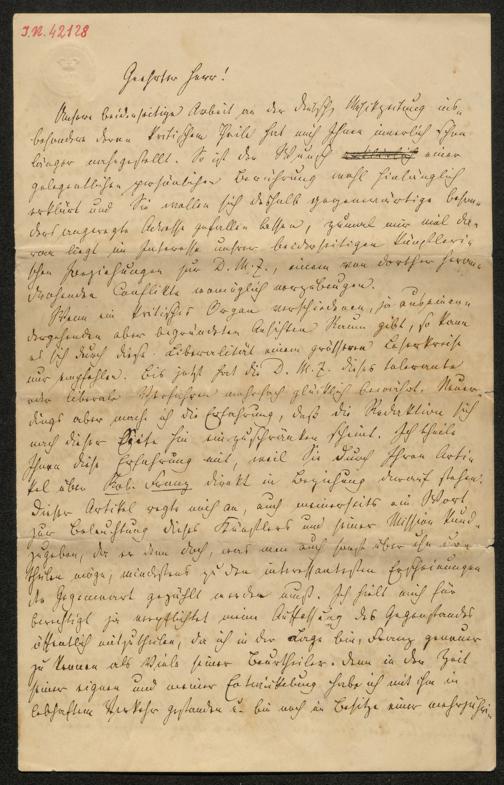 I.N. 42128
Geehrter Herr!
Unsere beiderseitige Arbeit an der Deutsch. Musikzeitung ins-
besondere deren kritischem Theile hat mich Ihnen innerlich schon
länger nahegestellt. So ist der Wunsch einer
gelegentlichen persönlichen Berührung wohl hinlänglich
erklärt und Sie wollen sich deshalb gegenwärtige beson-
ders angeregte Adresse gefallen lassen, zumal mir viel da-
ran liegt im Interesse unsrer beiderseitigen künstleri-
schen Beziehungen zur D. M. Z., einem von dorther heran-
drohenden Conflikte womöglich vorzubeugen.
Wenn ein kritisches Organ verschiedenen, ja auseinan-
dergehenden aber begründeten Ansichten Raum gibt, so kann
es sich durch diese Liberalität einem grösseren Leserkreise
nur empfehlen. Bis jetzt hat die D. M. Z. dieses tolerante
oder liberale Verfahren mehrfach glücklich bewährt. Neuer-
dings aber mache ich die Erfahrung, daß die Redaktion sich
nach dieser Seite hin einzuschränken scheint. Ich theile
Ihnen diese Erfahrung mit, weil Sie durch Ihren Arti-
kel über Rob. Franz direkt in Beziehung darauf stehen.
Dieser Artikel regte mich an, auch meinerseits ein Wort
zur Beleuchtung dieses Künstlers und seiner Mission kund-
zugeben, da er denn doch, was man auch sonst über ihn
urtheilen möge, mindestens zu den interessantesten Erscheinungen
der Gegenwart gezählt werden muß. Ich hielt mich für
berechtigt ja verpflichtet meine Auffassung des Gegenstandes
öffentlich mitzutheilen, da ich in der Lage bin, Franz genauer
zu kennen als Viele seiner Beurtheiler. Denn in der Zeit
seiner eignen und meiner Entwickelung habe ich mit ihm in
lebhaftem Verkehr gestanden u. bin noch im Besitze einer mehrjähri-